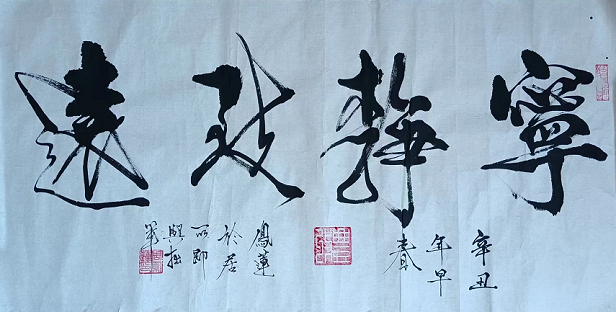 寧靜致遠
辛丑
年早
春
鳳蓮
於居
所即
興拙
筆